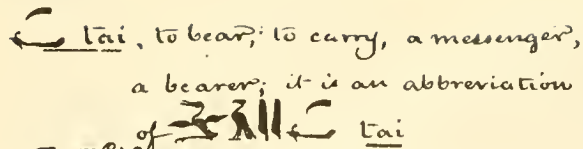 tai, to bear, to carry, a messenger,
a bearer; it is an abbreviation
of tai